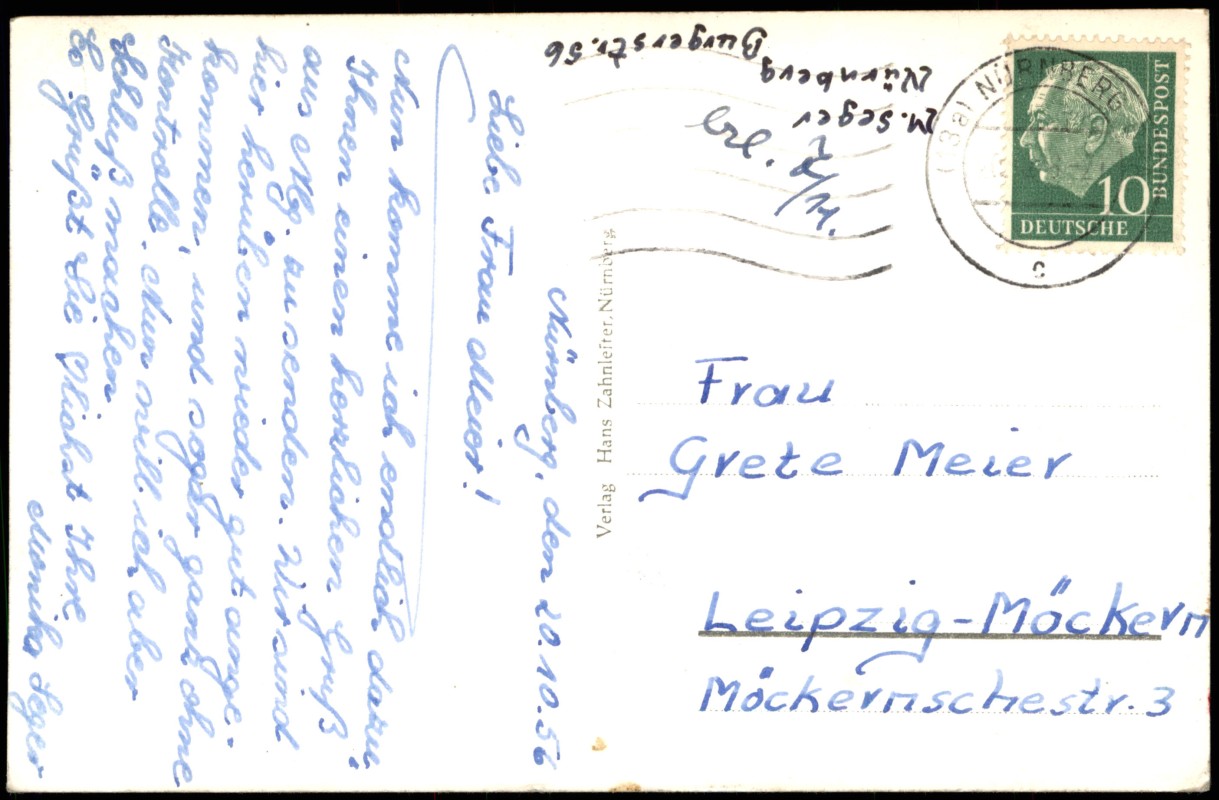 Nürnberg, den 20.10.56
Liebe Frau Meier!
Nun komme ich endlich dazu
Ihnen einen herzlichen Gruß
aus Nbg. zu senden. Wir sind
hier herüben wieder gut ange-
kommen, und sogar ganz ohne
Kontrolle. Nun will ich aber
Schluß machen
Es Grüßt Sie Ihre
Monika Seger
Verlag Hans Zahnleiter, Nürnberg
M. Seger
Nürnberg
Burgerstr. 56
(13a) NÜRNBERG
c
DEUTSCHE
BUNDESPOST
10
Frau
Grete Meier
Leipzig-Möckern
Möckernschestr. 3